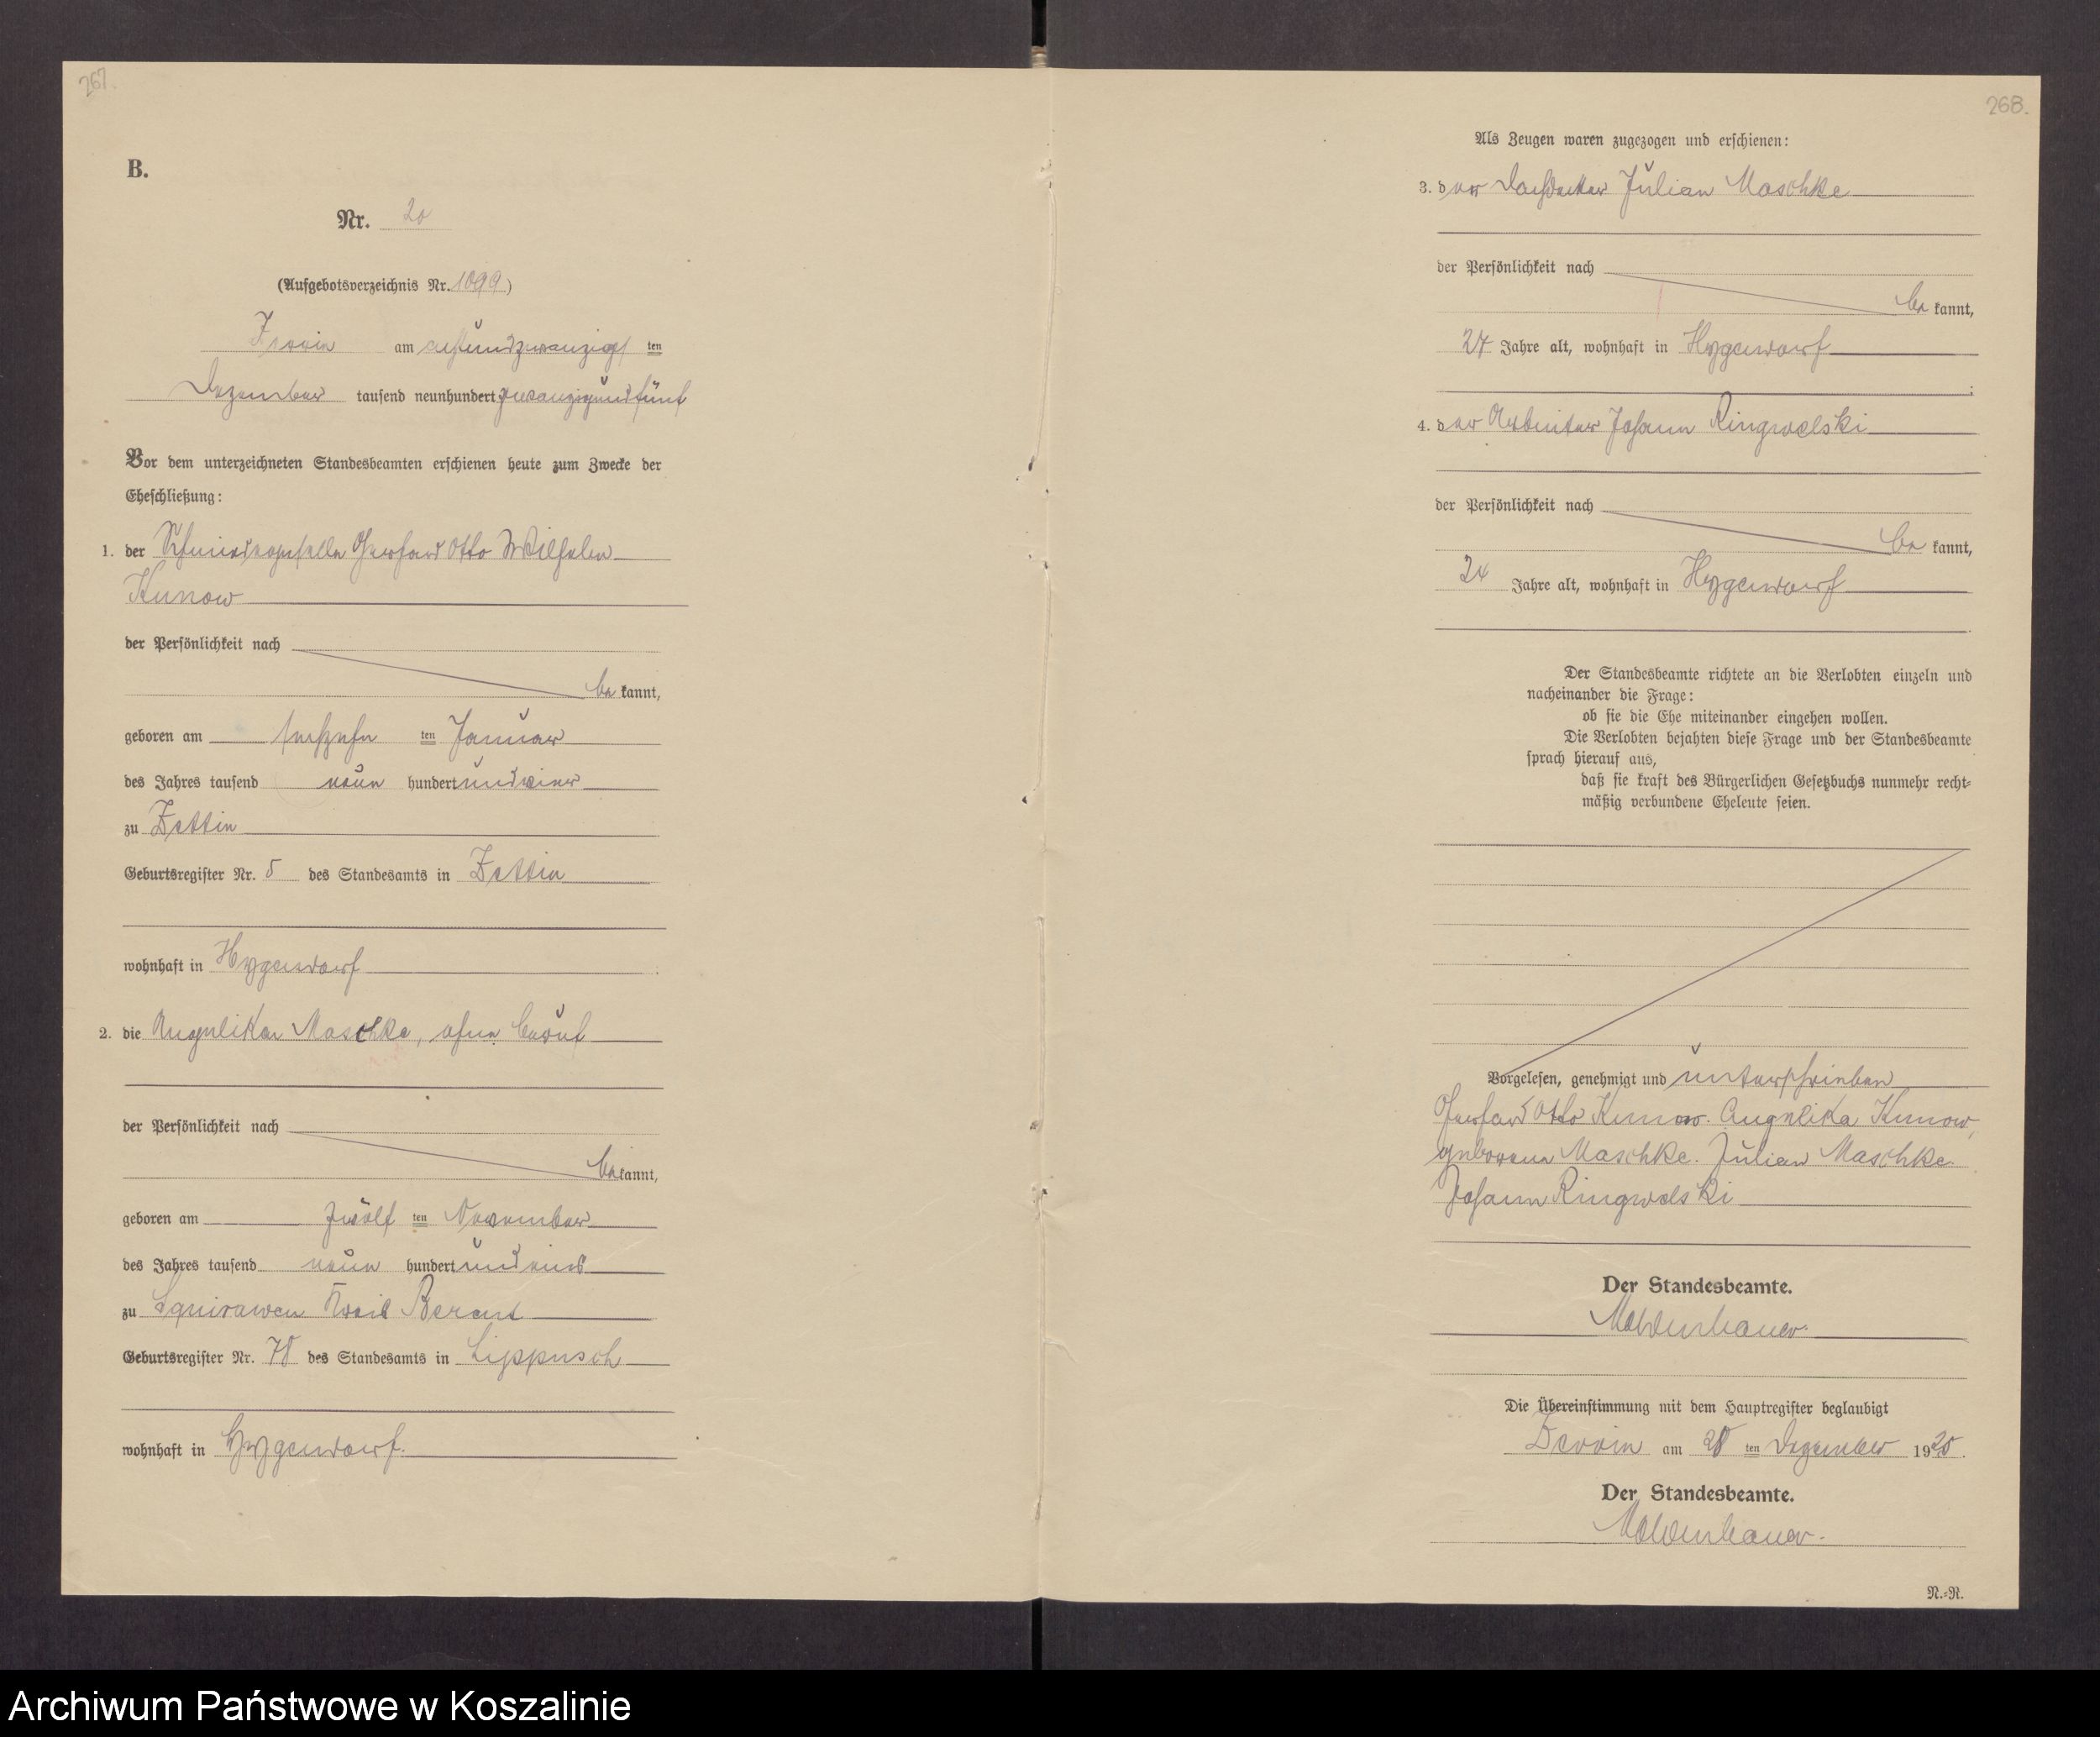 267.
B.
Nr. 20
(Aufgebotsverzeichnis Nr. 1099)
am achtundzwanzigsten
Dezember tausend neunhundert zwanzigundfünf
Vor dem unterzeichneten Standesbeamten erschienen heute zum Zwecke der
Eheschließung:
1. der Schmiedegeselle Gerhard Otto Wilhelm
Kunow
der Persönlichkeit nach
be kannt,
geboren am sechzehn ten Januar
des Jahres tausend neun hundert und
zu Zettin
Geburtsregister Nr. 5 des Standesamts in Zettin
wohnhaft in Hygendorf
2. die Angelika Maschke, ohne Beruf
der Persönlichkeit nach
be kannt,
geboren am zwölf ten November
des Jahres tausend neun hundert und eins
zu Kreis Berent
Geburtsregister Nr. 78 des Standesamts in Lippusch
wohnhaft in Hygendorf.
268.
Als Zeugen waren zugezogen und erschienen:
3. der Dachdecker Julian Maschke
der Persönlichkeit nach
be kannt,
27 Jahre alt, wohnhaft in Hygendorf
;
4. der Arbeiter Johann Ringwelski
der Persönlichkeit nach
be kannt,
24 Jahre alt, wohnhaft in Hygendorf
Der Standesbeamte richtete an die Verlobten einzeln und
nacheinander die Frage:
ob sie die Ehe miteinander eingehen wollen.
Die Verlobten bejahten diese Frage und der Standesbeamte
sprach hierauf aus,
daß sie kraft des Bürgerlichen Gesetzbuchs nunmehr recht-
mäßig verbundene Eheleute seien.
Vorgelesen, genehmigt und unterschrieben
Gerhard Otto Kunow. Angelika Kunow,
geborene Maschke. Julian Maschke
Johann Ringwelski
Der Standesbeamte.
Moldenhauer.
Die Übereinstimmung mit dem Hauptregister beglaubigt
am 28 ten Dezember 1925.
Der Standesbeamte.
Moldenhauer.
N.-R.
Archiwum Państwowe w Koszalinie